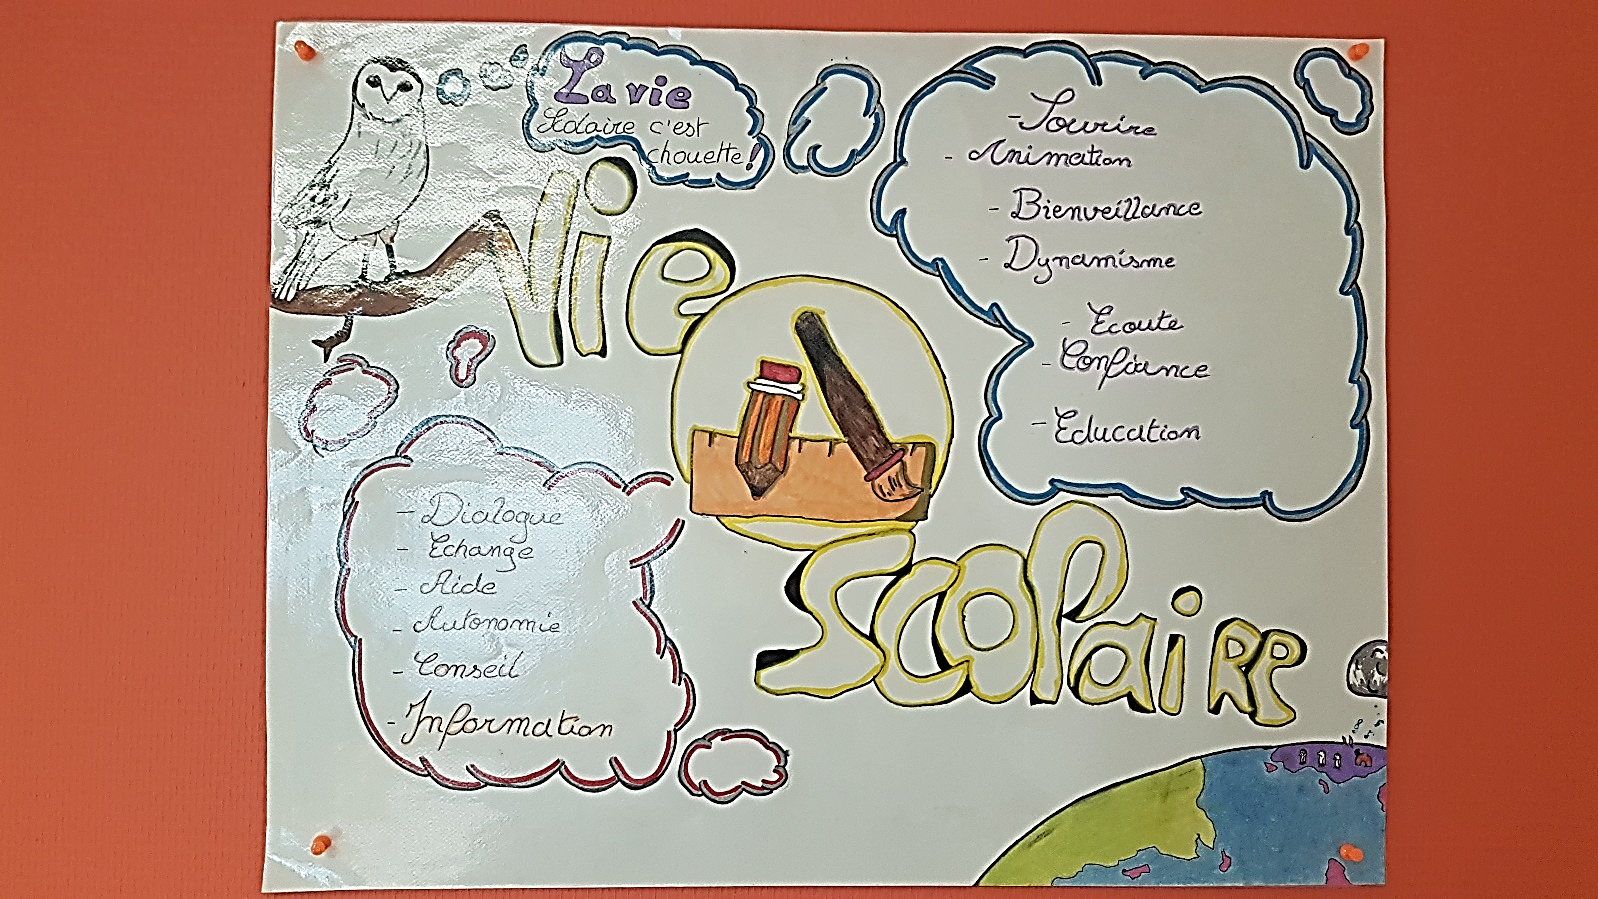 La vie
Scolaire c'est
chouette!
Vie
Scolaire
- Sourire
- Animation
- Bienveillance
- Dynamisme
- Ecoute
- Confiance
- Education
- Dialogue
- Echange
- Aide
- Autonomie
- Conseil
- Information